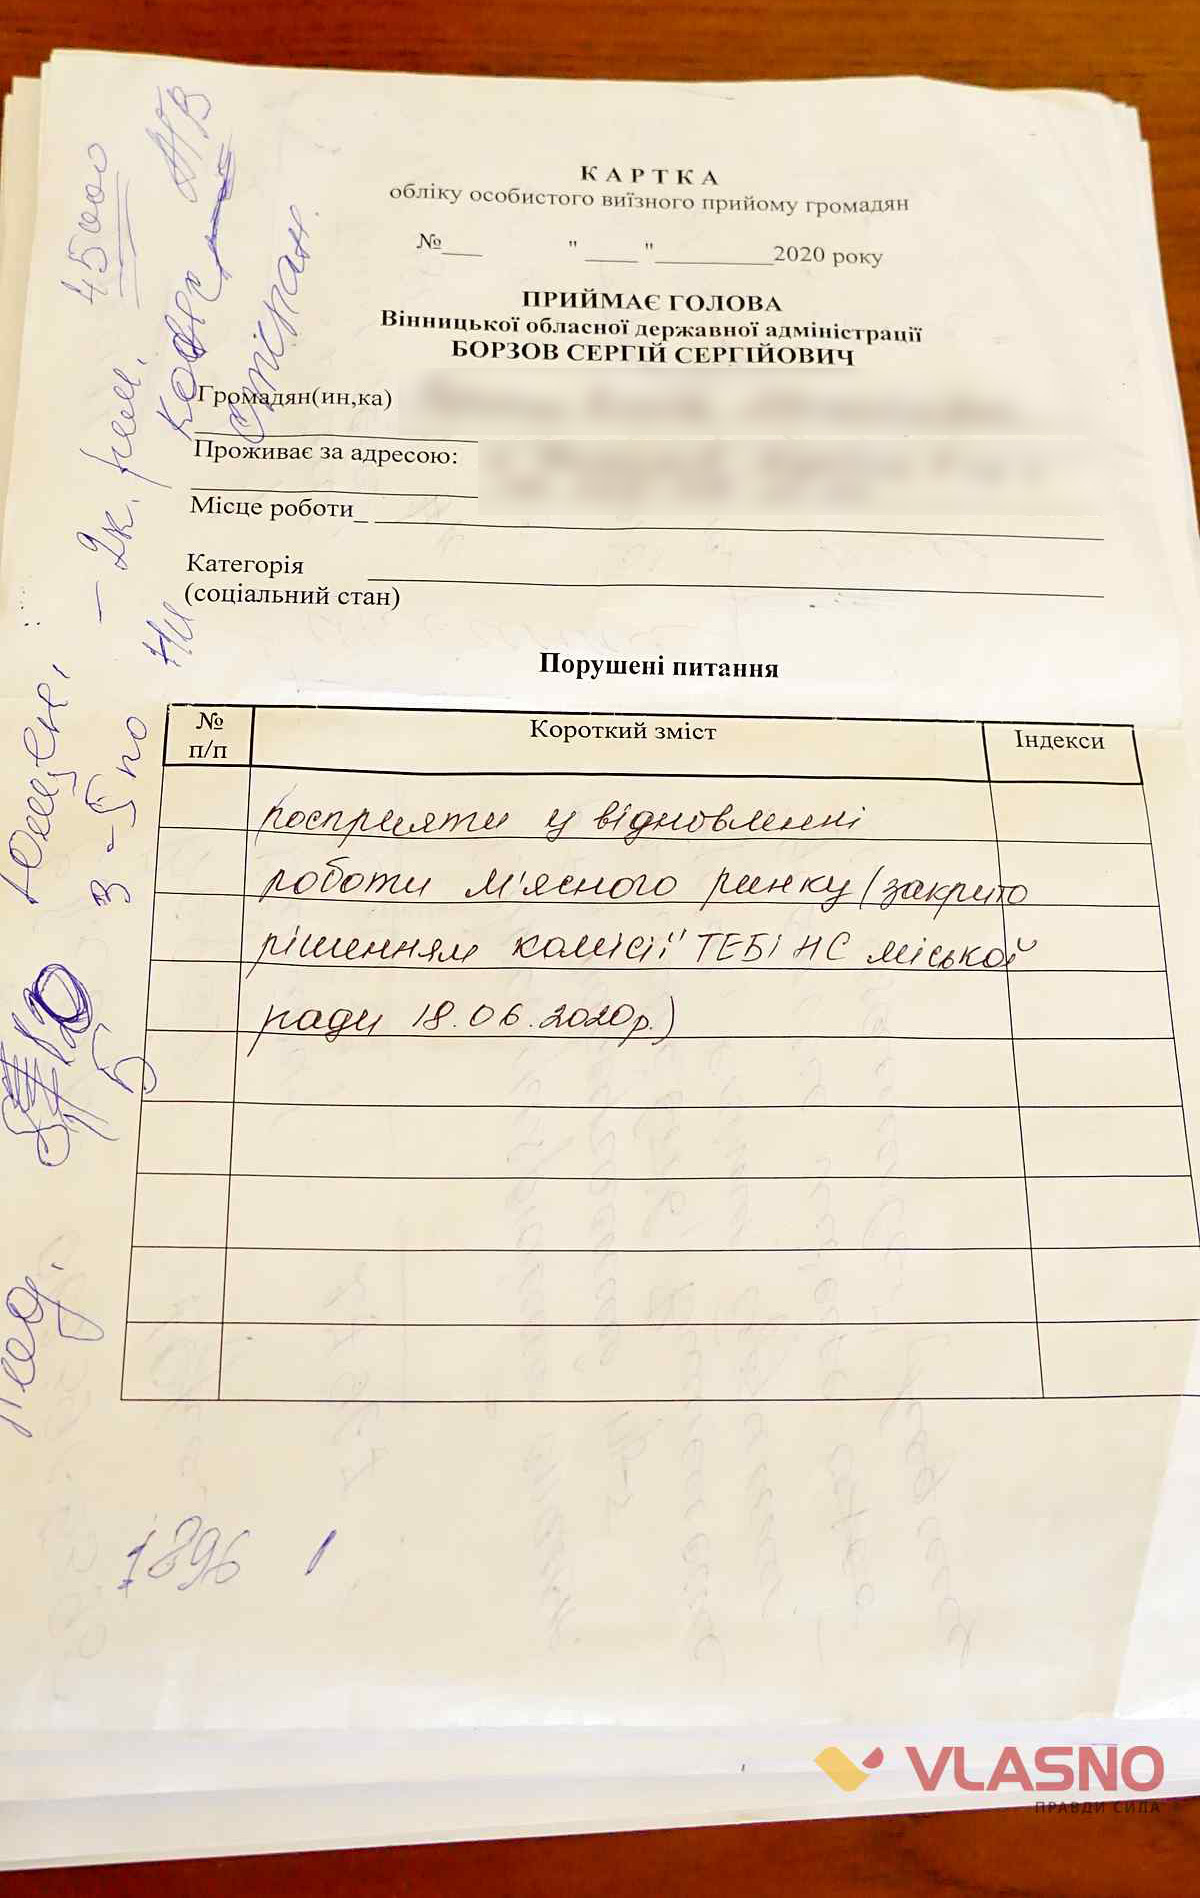 КАРТКА
обліку особистого виїзного прийому громадян
№___ "____"__________2020 року
ПРИЙМАЄ ГОЛОВА
Вінницької обласної державної адміністрації
БОРЗОВ СЕРГІЙ СЕРГІЙОВИЧ
Громадян(ин,ка)
Проживає за адресою:
Місце роботи_
Категорія
(соціальний стан)
Порушені питання
№ п/п Короткий зміст Індекси
посприяти у відновленні
роботи м'ясного ринку (закрито
рішенням комісії ТЕБ і НС міської
ради 18.06.2020р.)
45000
2к.
1896
VLASNO
ПРАВДИ СИЛА